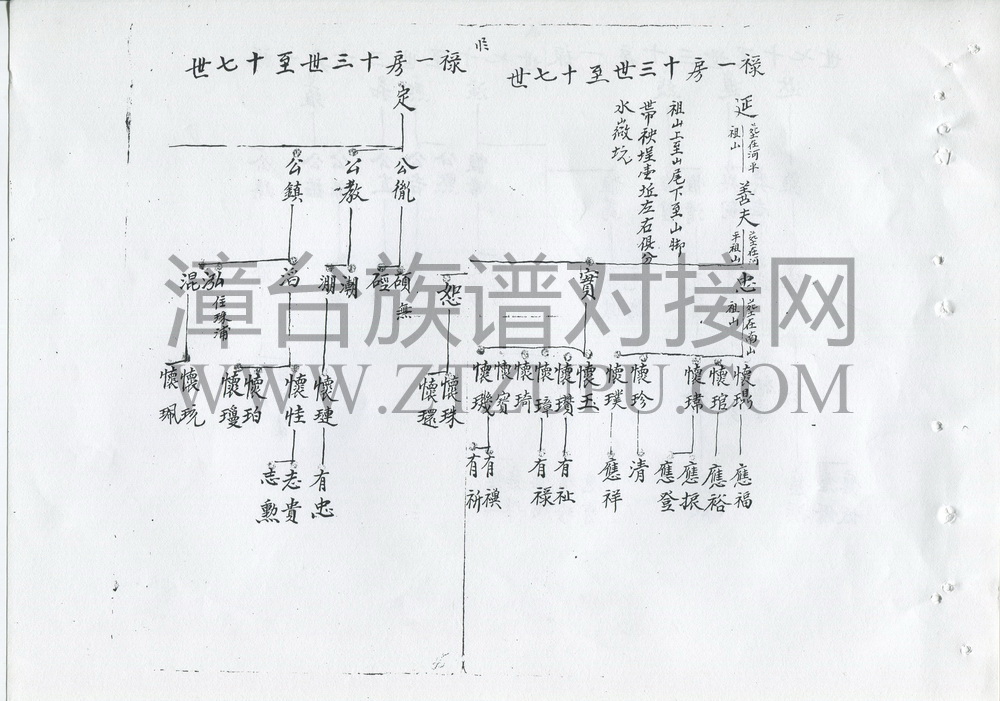 祿一房十三世至十七世
延
塟在河平
祖山
善夫
塟在河
平祖山
忠
塟在南山
祖山
祖山上至山尾下至山脚
帶秧埕壹坵左右俱分
水嶶坑
實
恕
懷瑒
懷琯
懷瑋
懷珍
懷璞
懷玉
懷瓚
懷璋
懷琦
懷寳
懷璣
懷珠
懷環
應福
應裕
應振
應登
清
應祥
有祉
有祿
有禩
有祈
祿一房十三世至十七世
定
公胤
公教
公鎮
碩無
磑
潮
淜
滔
泓
住珠浦
混
懷璉
懷恠
懷珀
懷瓊
懷玩
懷珮
有忠
志貴
志勲
漳台族谱对接网
WWW.ZTZUPU.COM